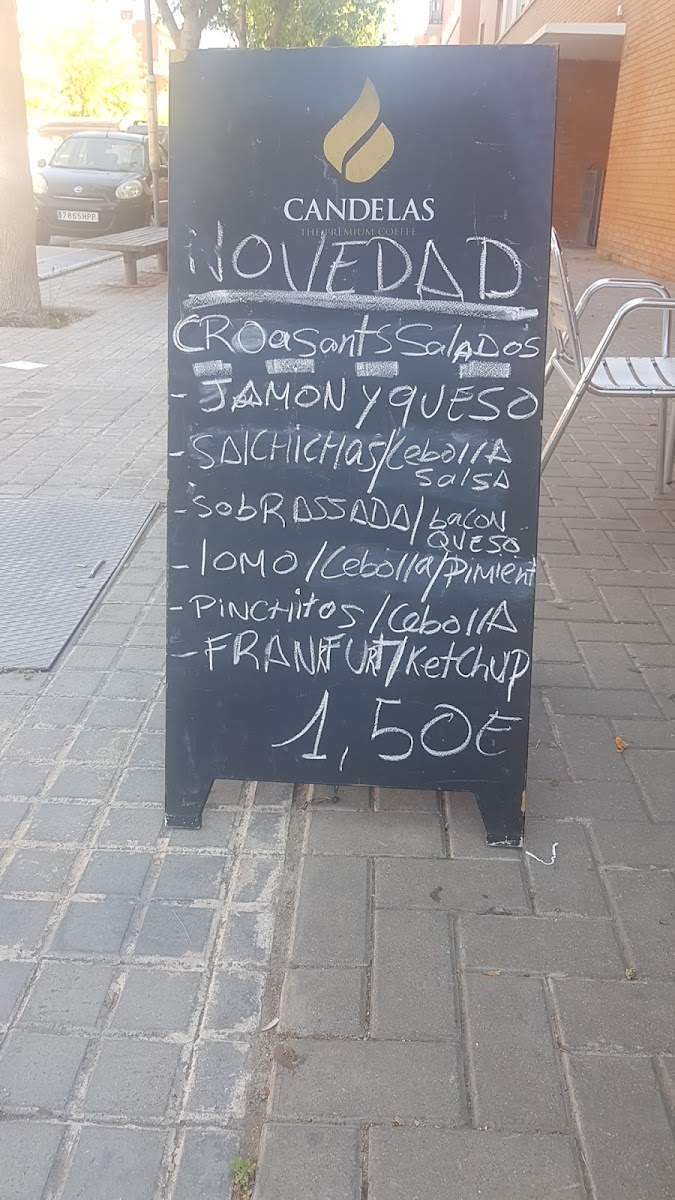 CANDELAS
THE PREMIUM COFFEE
NOVEDAD
CROasants SalADos
- JAMON y QUESO
- SAlCHICHas/CebollA
salsa
- SobRASSADA/bacon
QUESO
- lOMO/Cebolla/Pimient
- PINCHitos/CebollA
- FRANKFURT/Ketchup
1,50€
7865HPP